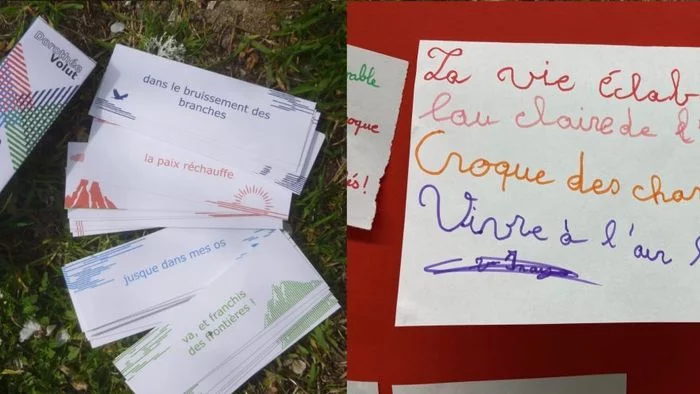 Dorothée
Volut
dans le bruissement des
branches
la paix réchauffe
jusque dans mes os
va, et franchis
des frontières !
La vie éclab
l'au claire de l'
Croque des cha
Vivre à l'air l